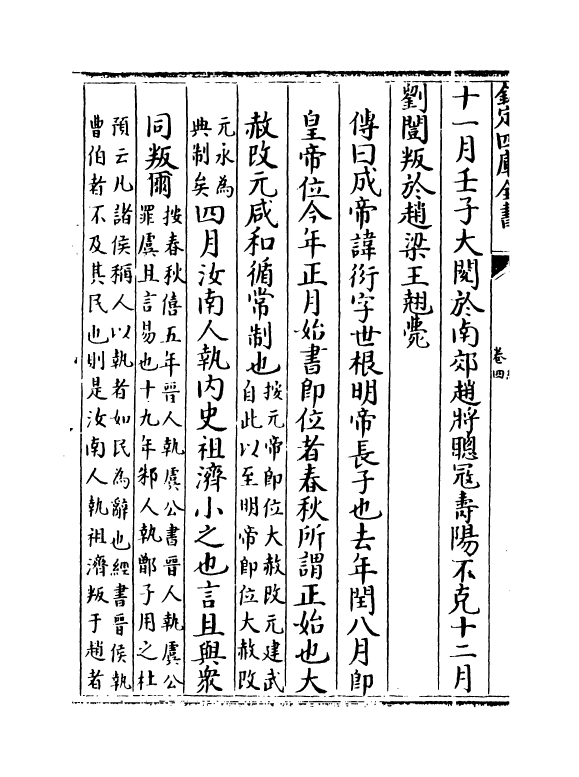 欽定四庫全書
卷四
十一月壬子大閱於南郊趙將聰冦壽陽不克十二月
劉闓叛於趙梁王翹薨
傳曰成帝諱衍字世根明帝長子也去年閏八月即
皇帝位今年正月始書即位者春秋所謂正始也大
赦改元咸和循常制也按元帝即位大赦改元建武自此以至明帝即位大赦改
元永為典制矣四月汝南人執内史祖濟小之也言且與衆
同叛爾按春秋僖五年晉人執虞公書晉人執虞公罪虞且言易也十九年邾人執鄫子用之杜
預云凡諸侯稱人以執者如民為辭也經書晉侯執曹伯者不及其民也則是汝南人執祖濟叛于趙者